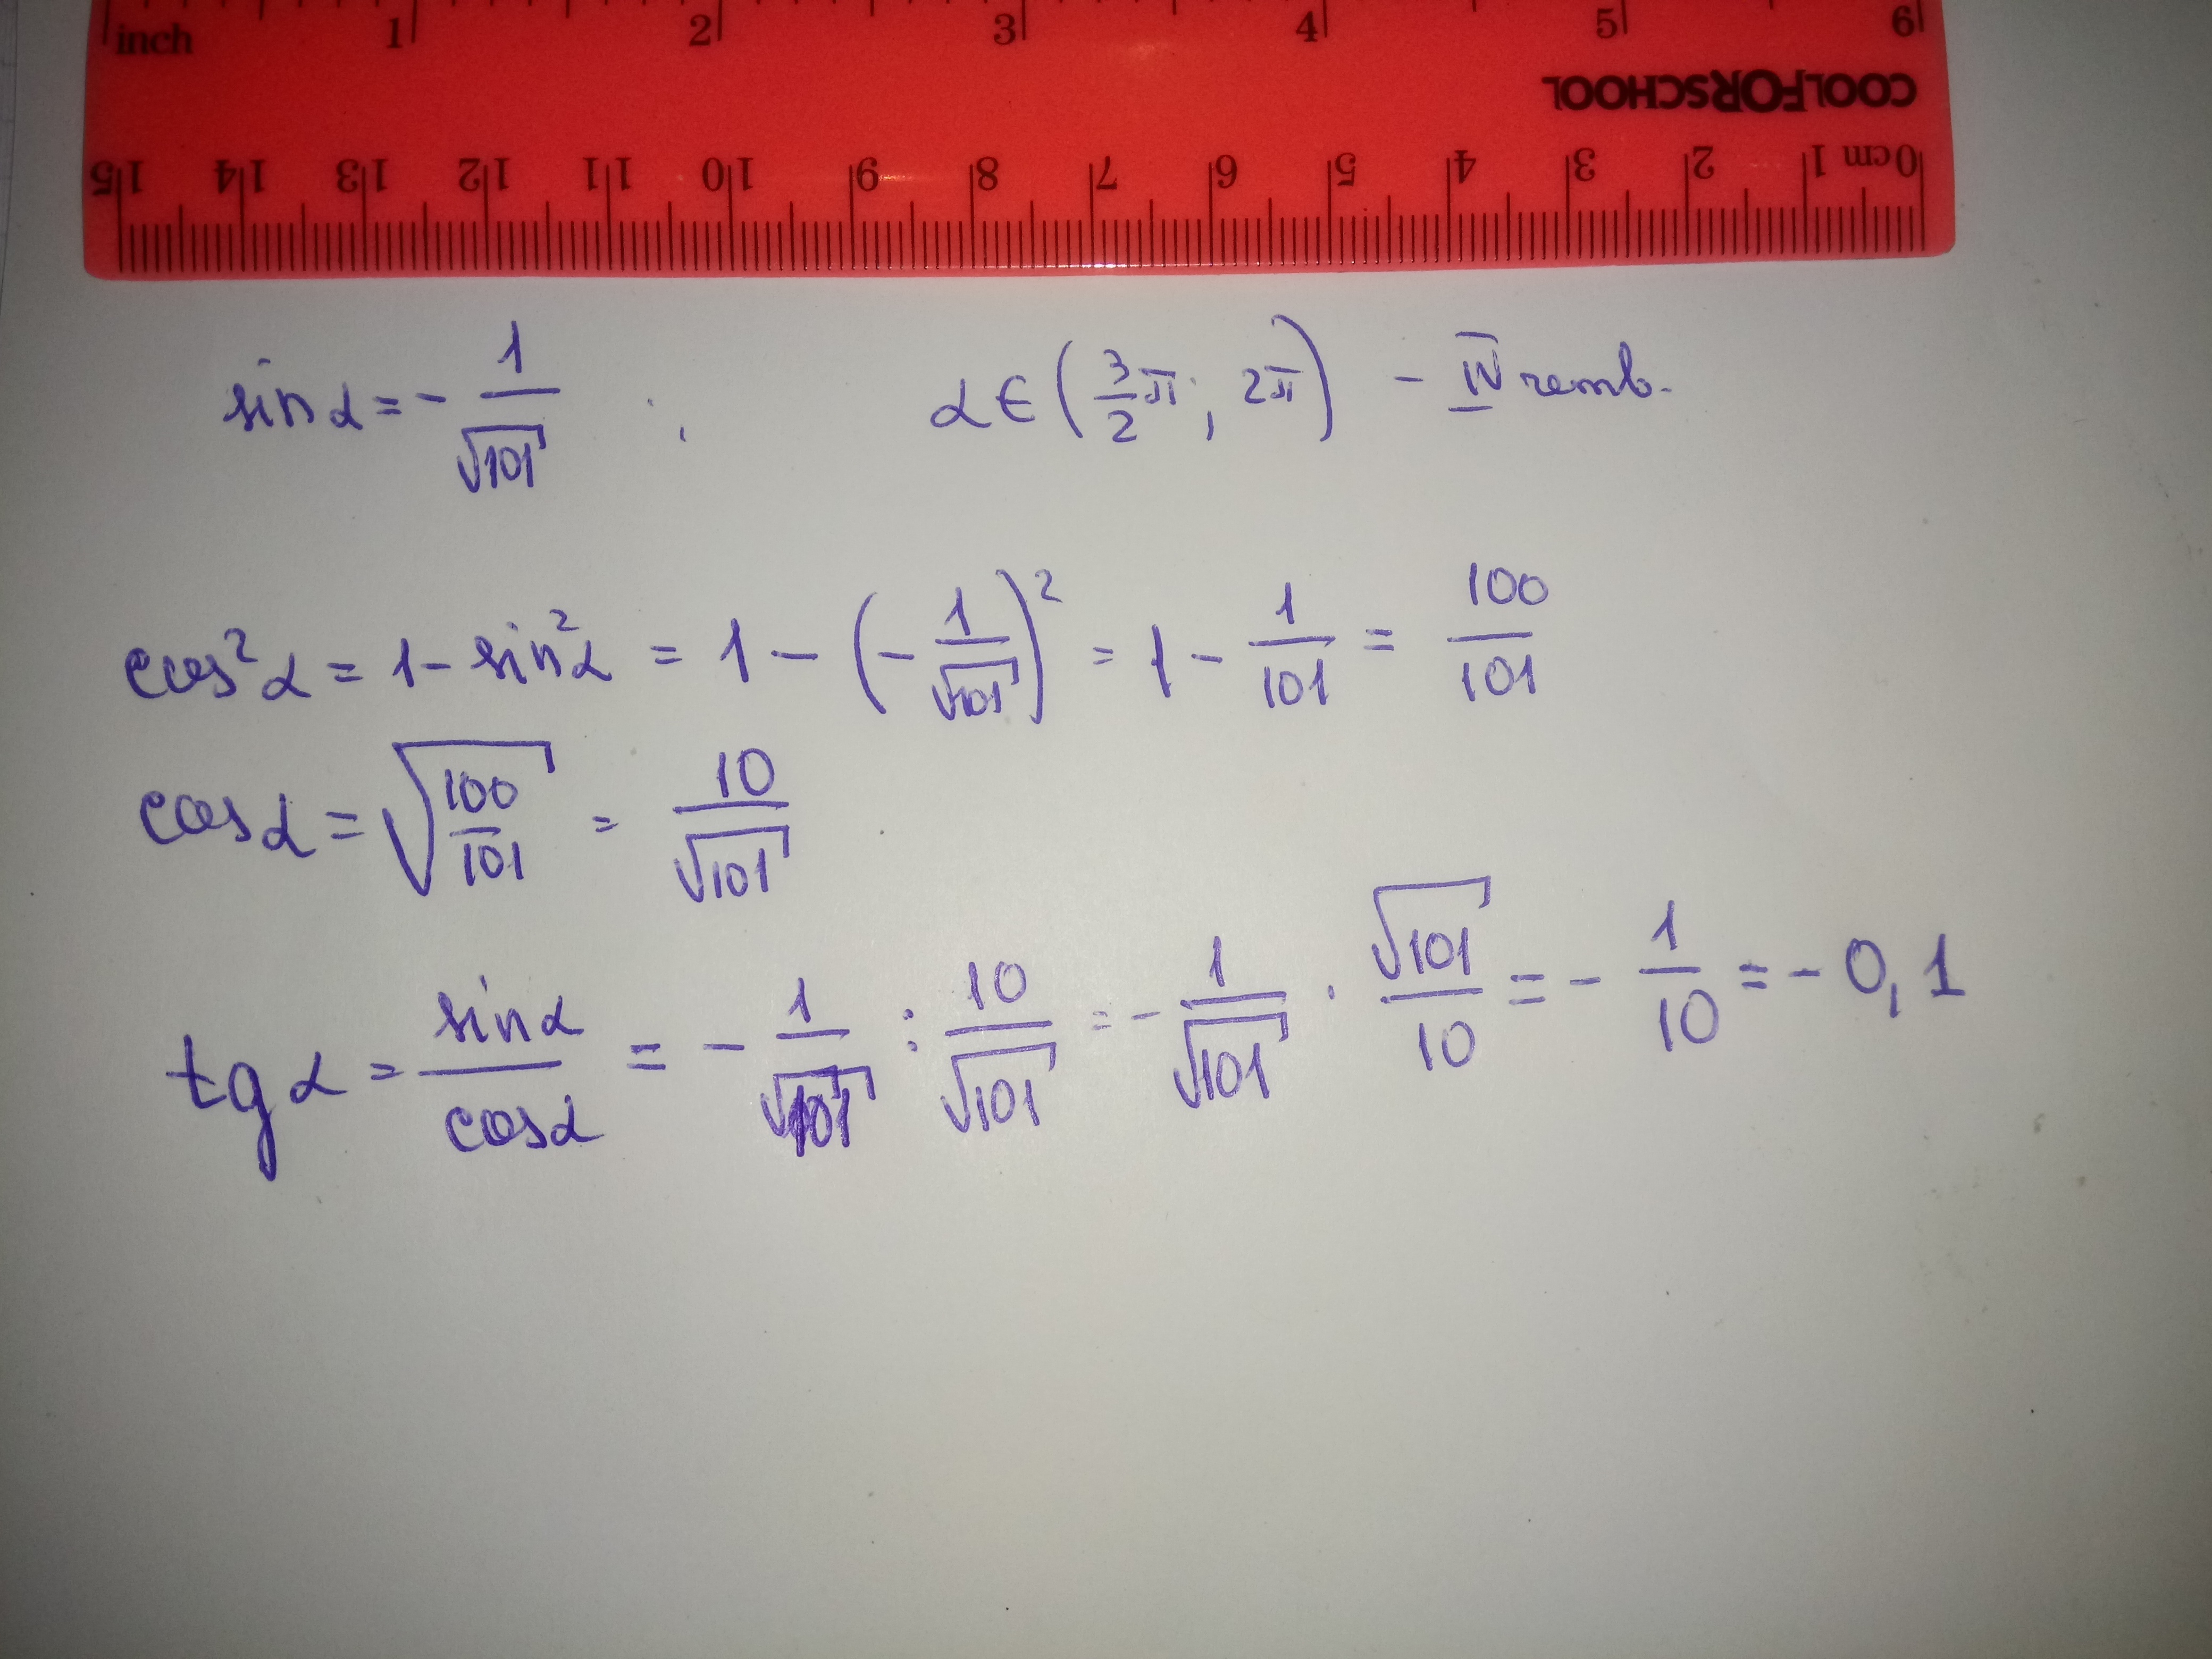 inch 1 2 3 4 5 6
COOLFORSCHOOL
15 14 13 12 11 10 9 8 7 6 5 4 3 2 1 cm 0
sin α = - 1/√101 ; α ∈ (3/2 π; 2π) - IV четв.
cos²α = 1 - sin²α = 1 - (- 1/√101)² = 1 - 1/101 = 100/101
cos α = √(100/101) = 10/√101
tg α = sin α/cos α = - 1/√101 : 10/√101 = - 1/√101 · √101/10 = - 1/10 = - 0,1